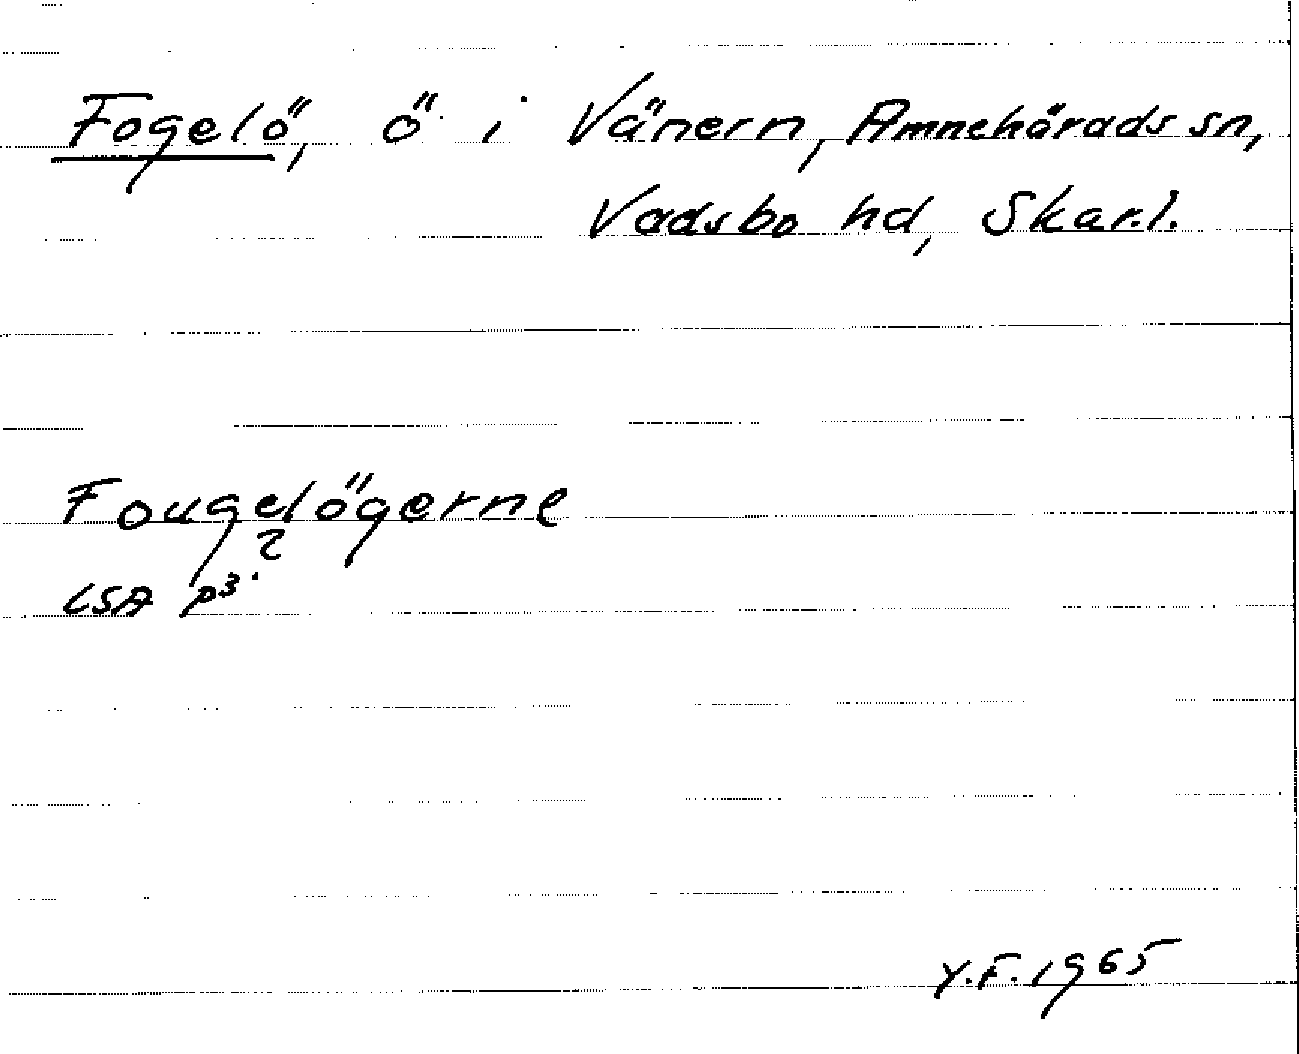 Fogelö, ö i Vänern, Amnehärads sn,
Vadsbo hd, Skar.l.
Fougelögerne
LSA p3:2
Y.F. 1965